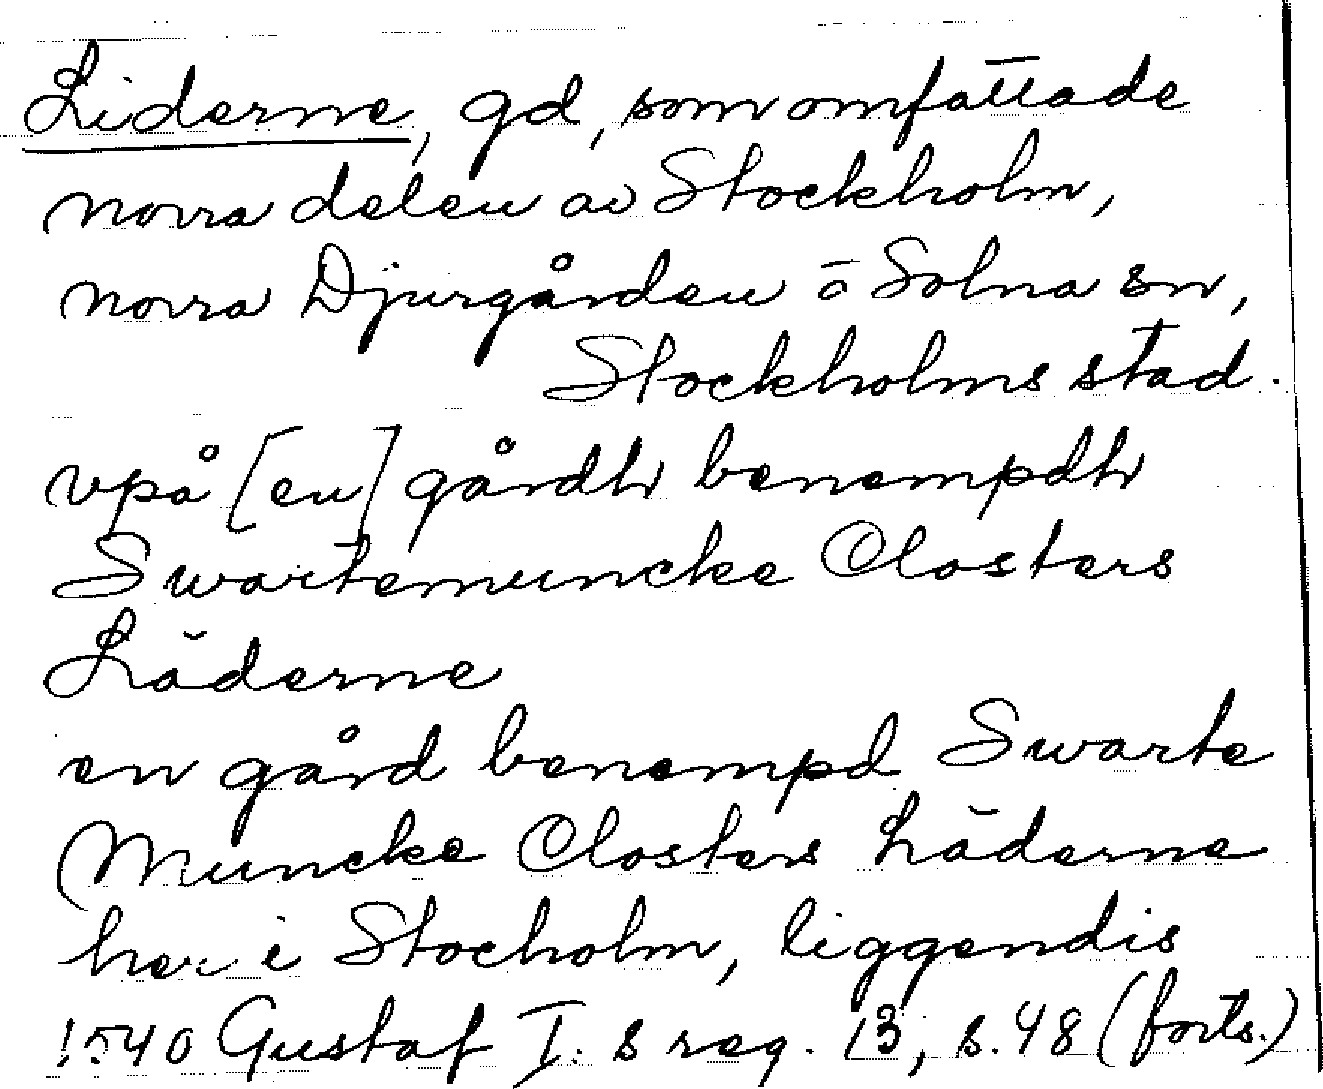 Liderne, gd, som omfattade
norra delen av Stockholm,
norra Djurgården o Solna sn,
Stockholms stad.
vpå [en] gårdh benempdh
Swartemuncke Closters
Läderne
en gård benempd Swarte
Muncke Closters Läderne
her i Stocholm, liggendis
1540 Gustaf I:s reg. 13, s. 48 (forts.)